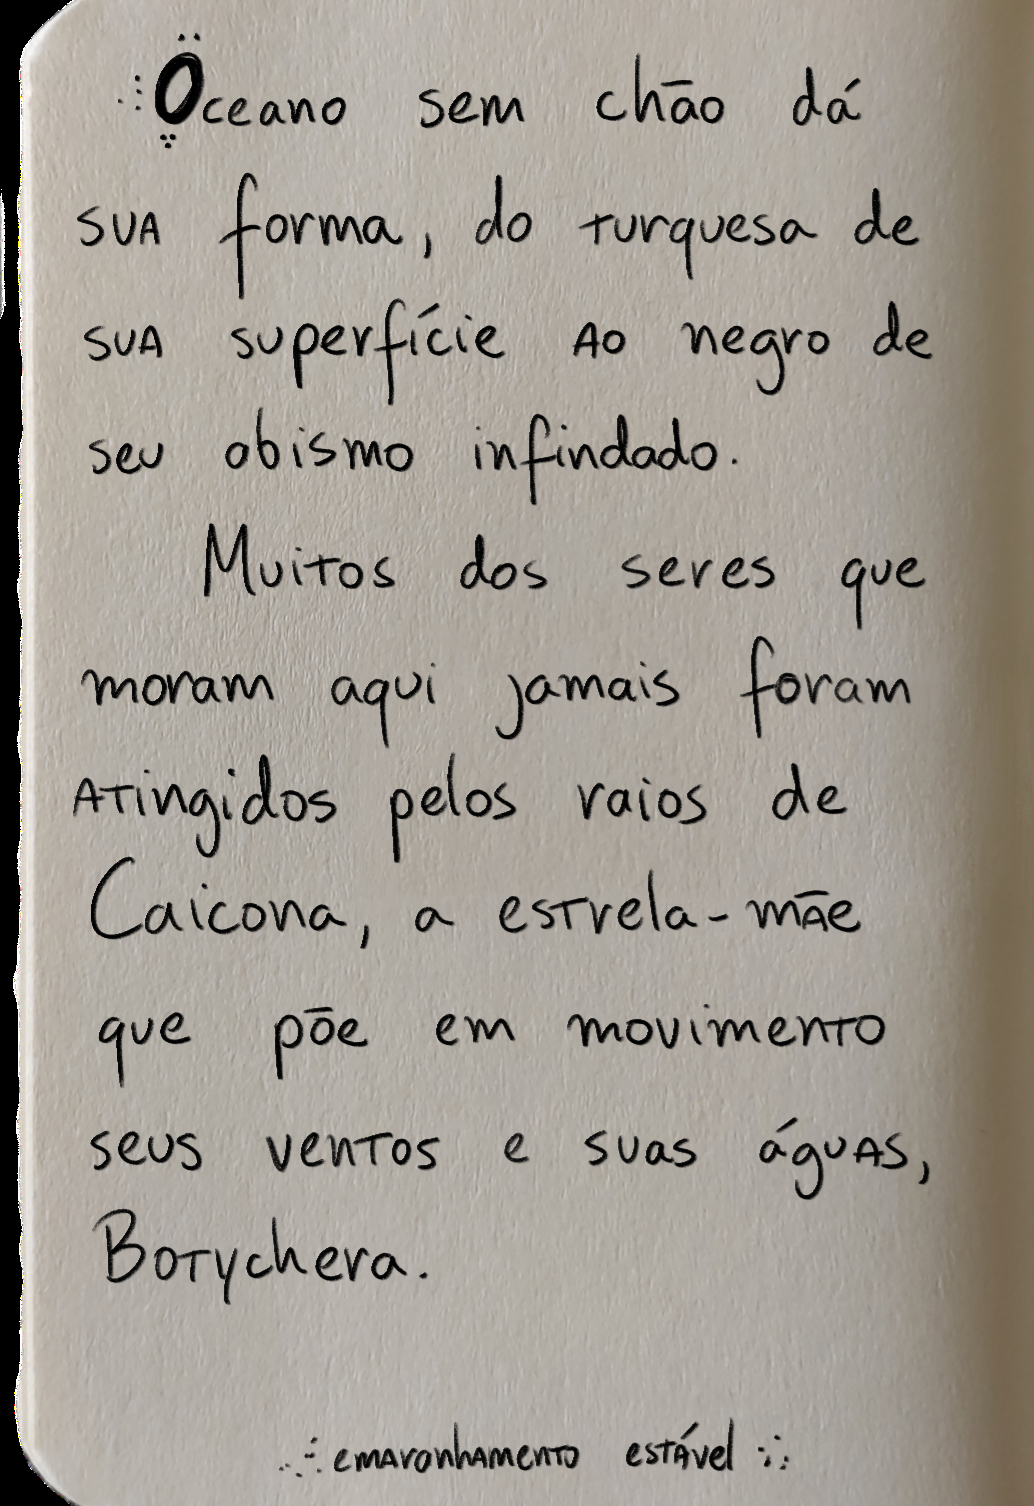 Oceano sem chão dá
sua forma, do turquesa de
sua superfície ao negro de
seu abismo infindado.
Muitos dos seres que
moram aqui jamais foram
atingidos pelos raios de
Caicona, a estrela-mãe
que põe em movimento
seus ventos e suas águas,
Botychera.
emaranhamento estável